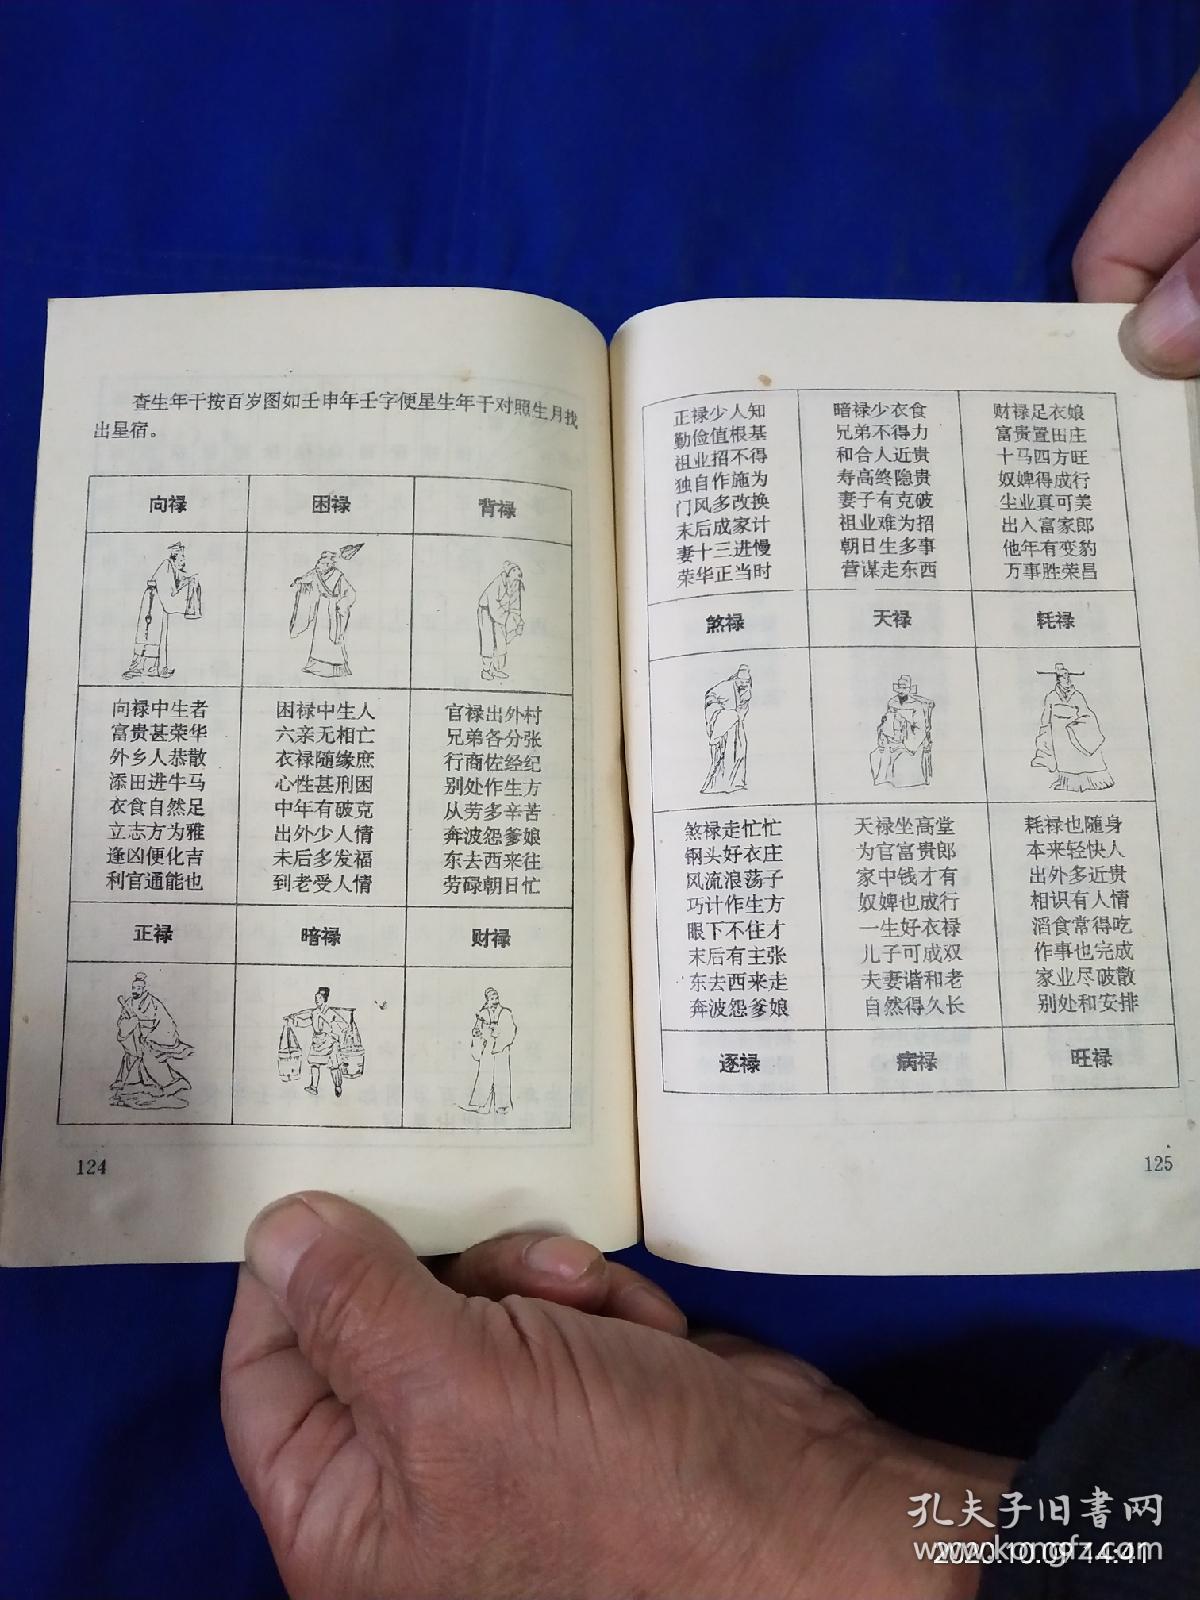 查生年干按百岁图如壬申年壬字便星生年干对照生月找
出星宿。
向禄
困禄
背禄
向禄中生者
富贵甚荣华
外乡人恭散
添田进牛马
衣食自然足
立志方为雅
逢凶便化吉
利官通能也
困禄中生人
六亲无相亡
衣禄随缘庶
心性甚刑困
中年有破克
出外少人情
未后多发福
到老受人情
官禄出外村
兄弟各分张
行商佐经纪
别处作生方
从劳多辛苦
奔波怨爹娘
东去西来往
劳碌朝日忙
正禄
暗禄
财禄
124
正禄少人知
勤俭值根基
祖业招不得
独自作施为
门风多改换
末后成家计
妻十三进慢
荣华正当时
暗禄少衣食
兄弟不得力
和合人近贵
寿高终隐贵
妻子有克破
祖业难为招
朝日生多事
营谋走东西
财禄足衣娘
富贵置田庄
十马四方旺
奴婢得成行
尘业真可美
出入富家郎
他年有变豹
万事胜荣昌
煞禄
天禄
耗禄
煞禄走忙忙
钢头好衣庄
风流浪荡子
巧计作生方
眼下不住才
末后有主张
东去西来走
奔波怨爹娘
天禄坐高堂
为官富贵郎
家中钱才有
奴婢也成行
一生好衣禄
儿子可成双
夫妻谐和老
自然得久长
耗禄也随身
本来轻快人
出外多近贵
相识有人情
滔食常得吃
作事也完成
家业尽破散
别处和安排
逐禄
病禄
旺禄
125
孔夫子旧书网
www.kongfz.com
2020.10.09 14:41